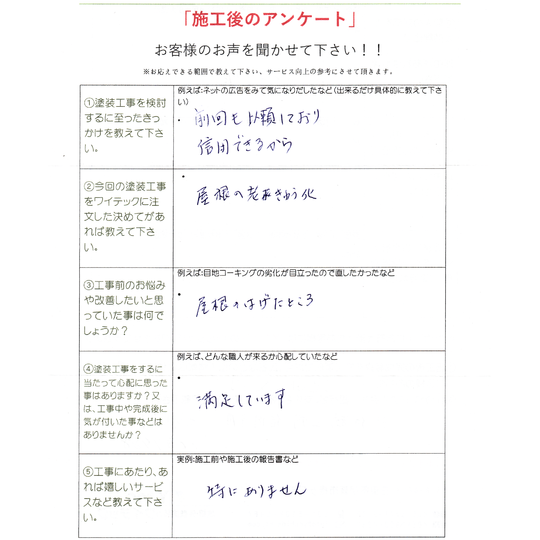 「施工後のアンケート」
お客様のお声を聞かせて下さい！！
※お応えできる範囲で教えて下さい。サービス向上の参考にさせて頂きます。
①塗装工事を検討
するに至ったきっ
かけを教えて下さ
い。
例えば:ネットの広告をみて気になりだしたなど（出来るだけ具体的に教えて下さ
い）
・前回も依頼しており
信用できるから
②今回の塗装工事
をワイテックに注
文した決めてがあ
れば教えて下さ
い。
・
屋根の老朽きゅう化
③工事前のお悩み
や改善したいと思
っていた事は何で
しょうか？
例えば:目地コーキングの劣化が目立ったので直したかったなど
・
屋根のはげたところ
④塗装工事をするに
当たって心配に思った
事はありますか？又
は、工事中や完成後に
気が付いた事などは
ありませんか？
例えば、どんな職人が来るか心配していたなど
・
満足しています
⑤工事にあたり、あ
れば嬉しいサービ
スなど教えて下さ
い。
実例:施工前や施工後の報告書など
特にありません